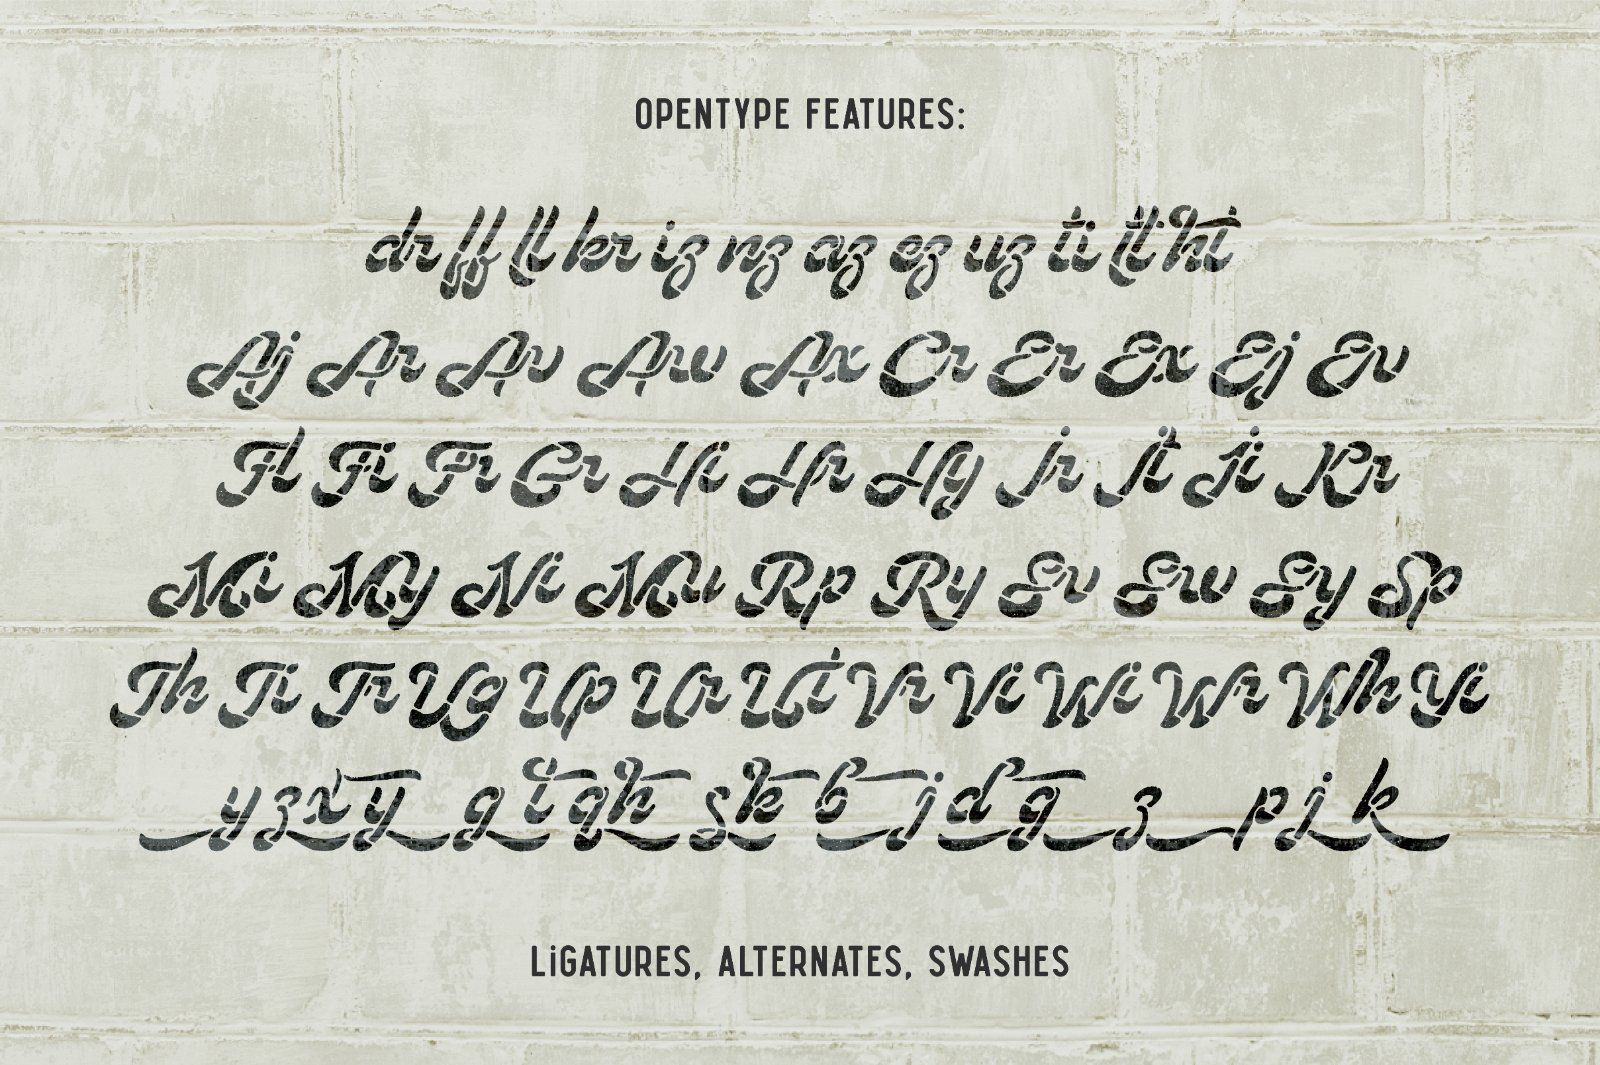 OPENTYPE FEATURES:
dr ff ll kr iz nz az ez uz ti tt ht
Aj Ar Av Aw Ax Cr Er Ex Ej Ev
Fl Fi Fr Gr Hi Hr Hy Jr Jt Ji Kr
Mi My Ni Mu Rp Ry Ev Ew Ey Sp
Th Ti Tr Ug Up Ur Ut Vr Vi Wi Wr Wh Yi
y z x y g t g h s k b j d g z p j k
LiGATURES, ALTERNATES, SWASHES